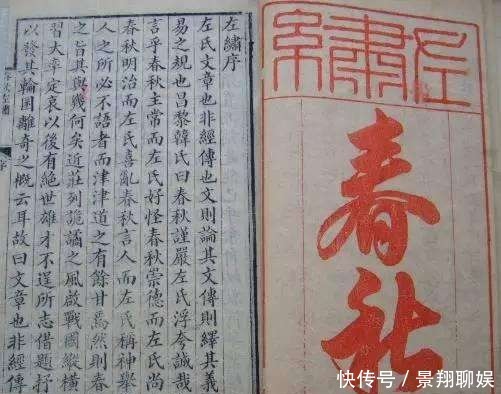 左繡
春秋
左繡序
左氏文章也非經傳也文則論其文傳則繹其義
易之規也昌黎韓氏曰春秋謹嚴左氏浮夸誠哉
言乎春秋主常而左氏好怪春秋崇德而左氏尚
春秋明治而左氏喜亂春秋言人而左氏稱神舉
人之所必不語者而津津道之有餘甘焉然則春
之旨其與幾何矣近莊列詭譎之風啟戰國縱橫
習大率定哀以後有絕世雄才不逞所志借題抒
以發其輪囷離奇之概云耳故曰文章也非經傳
快传号 / 景翔聊娱